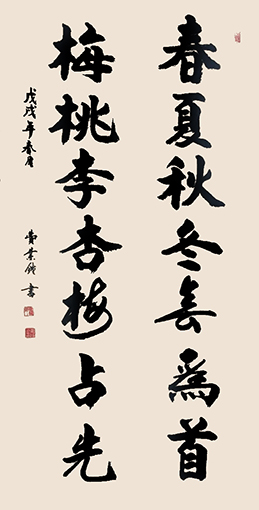 春夏秋冬春爲首
梅桃李杏梅占先
戊戌年春月
書